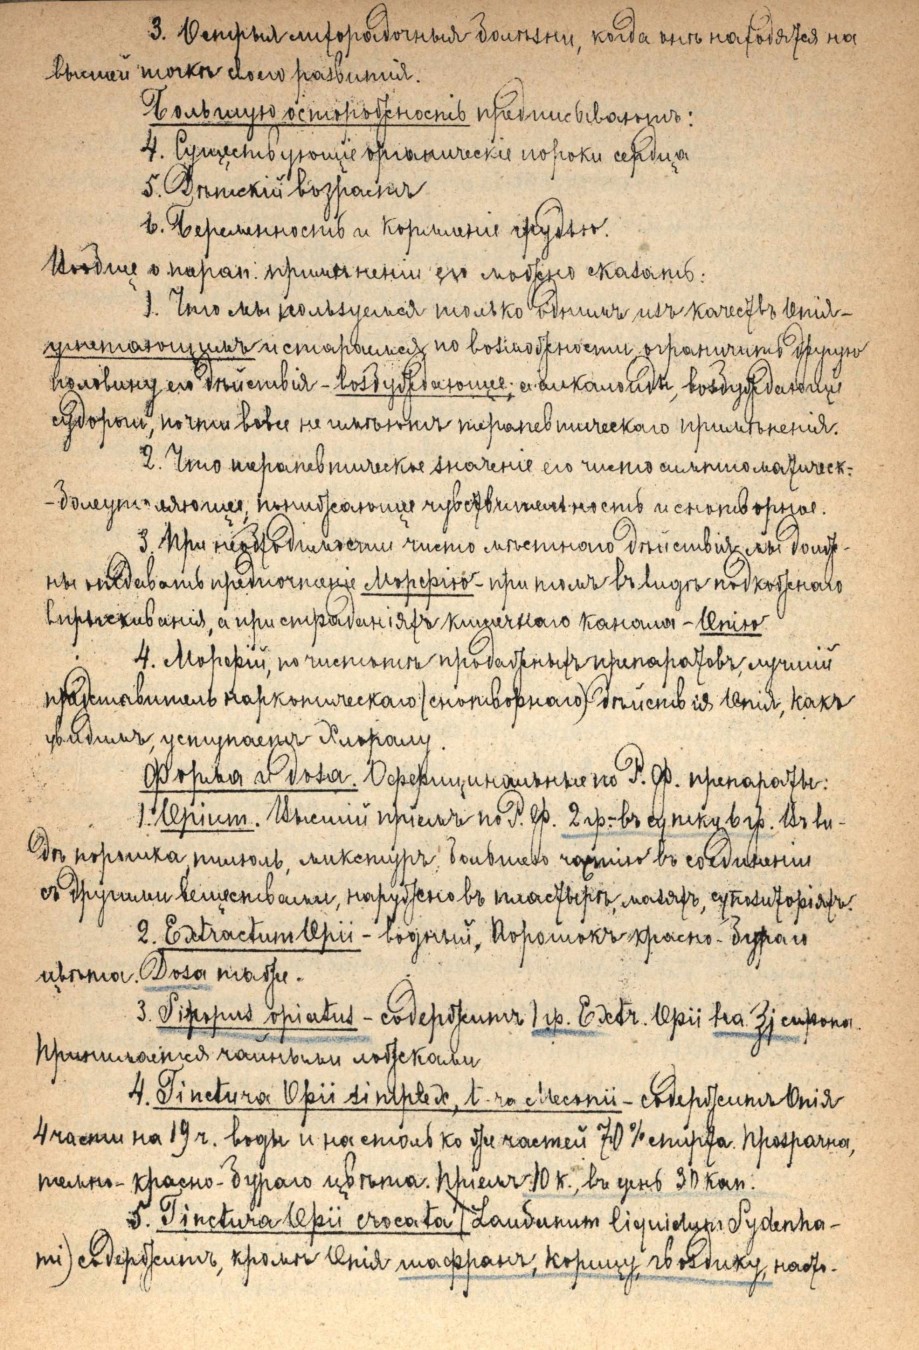 3. Острыя лихорадочныя болѣзни, когда онѣ находятся на
высшей точкѣ своего развитія.
Большую осторожность предписываютъ:
4. Существующіе органическіе пороки сердца
5. Дѣтскій возрастъ
6. Беременность и кормленіе грудью.
Вообще о терап. примѣненіи его можно сказать:
1. Что мы пользуемся только однимъ изъ качествъ Опія –
угнетающимъ и стараемся по возможности ограничить другую
половину его дѣйствія – возбуждающее; а алкалоиды, возбуждающіе
судороги, почти вовсе не имѣютъ терапевтическаго примѣненія.
2. Что терапевтическое значеніе его чисто симптоматическ:
– болеутоляющее, понижающее чувствительность и снотворное.
3. При необходимости чисто мѣстнаго дѣйствія мы долж-
ны отдавать предпочтеніе Морфію – при томъ въ видѣ подкожнаго
впрыскиванія, а при страданіяхъ кишечнаго канала – Опію
4. Морфій, по чистотѣ продажныхъ препаратовъ, лучшій
представитель наркотическаго (снотворнаго) дѣйствія Опія, какъ
увидимъ, уступаетъ Хлоралу.
Форма и dosa. Оффициналъные по Р. Ф. препараты:
1. Opium. Высшій пріемъ по Р. Ф. 2 гр. – въ сутки 6 гр. Въ ви-
дѣ порошка, пилюль, микстуръ, большею частію въ соединеніи
съ другими веществами, наружно въ пластырѣ, мазяхъ, супозиторіяхъ.
2. Extractum Opii – водный, Порошокъ красно-бураго
цвѣта. Dosa таже.
3. Siropus opiatus – содержитъ 1 гр. Extr. Opii на ʒj сиропа.
Принимается чайными ложками
4. Tinctura Opii simplex, t-ra Meconii – содержитъ Опія
4 части на 19 ч. воды и на столько же частей 70% спирта. Прозрачна,
темно-красно-бураго цвѣта. Пріемъ 10 к., въ день 30 кап.
5. Tinctura Opii crocata (Laudanum liquidum Sydenha-
mi) содержитъ, кромѣ Опія шафранъ, корицу, гвоздику,